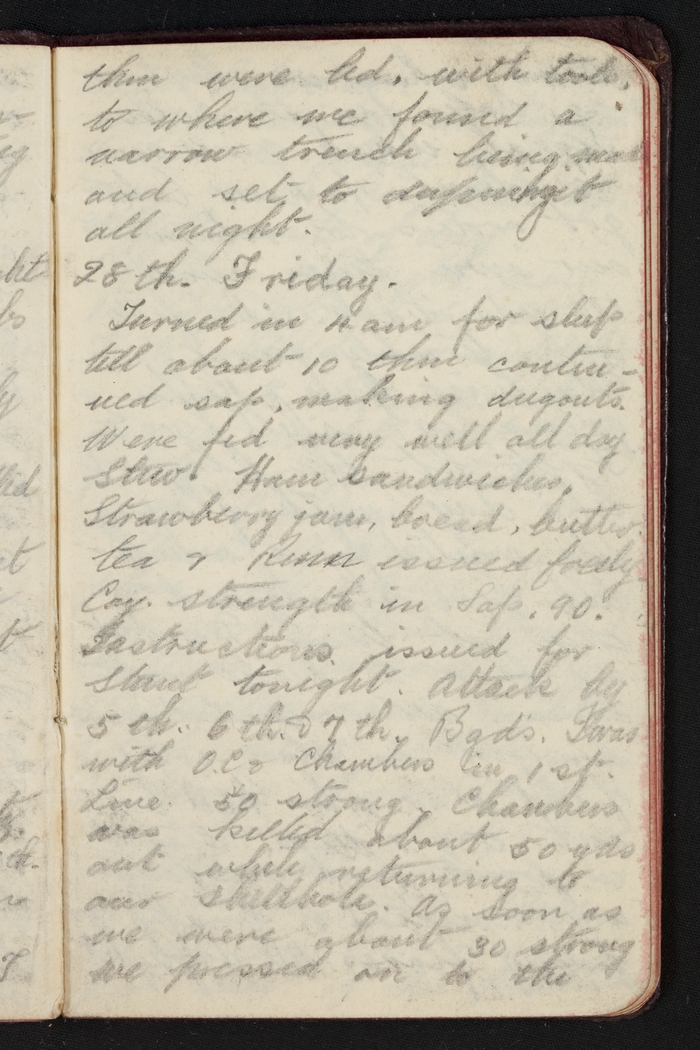 then were led, with tools,
to where we found a
narrow trench being made
and set to deepening it
all night.
28th. Friday.
Turned in 4 am for sleep
till about 10 then contin-
ued sap, making dugouts.
Were fed very well all day
Stew. Ham sandwiches,
Strawberry jam, bread, butter
tea & Rum issued freely
Coy. strength in Sap. 90.
Instructions issued for
Stunt tonight. Attack by
5th. 6th. & 7th. Bgds. I was
with O.C. Chambers in 1st.
Line. 50 strong. Chambers
was killed about 50 yds
out while returning to
our shellhole. As soon as
we were about 30 strong
we pressed on to the